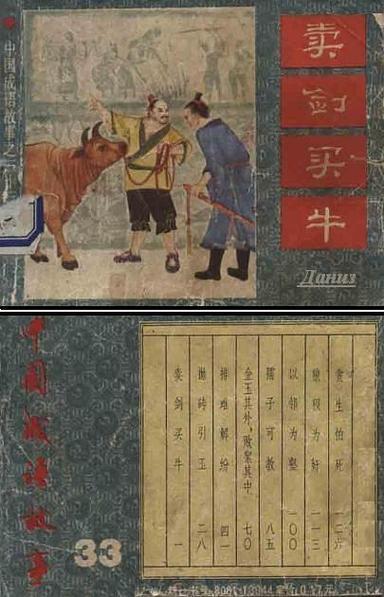 中国成语故事之三
卖
剑
买
牛
Даниз
中国成语故事
33
卖剑买牛 一
抛砖引玉 二八
排难解纷 四一
金玉其外，败絮其中 七〇
孺子可教 八五
以邻为壑 一〇〇
狼狈为奸 一一三
贪生怕死 一二六
0.17元